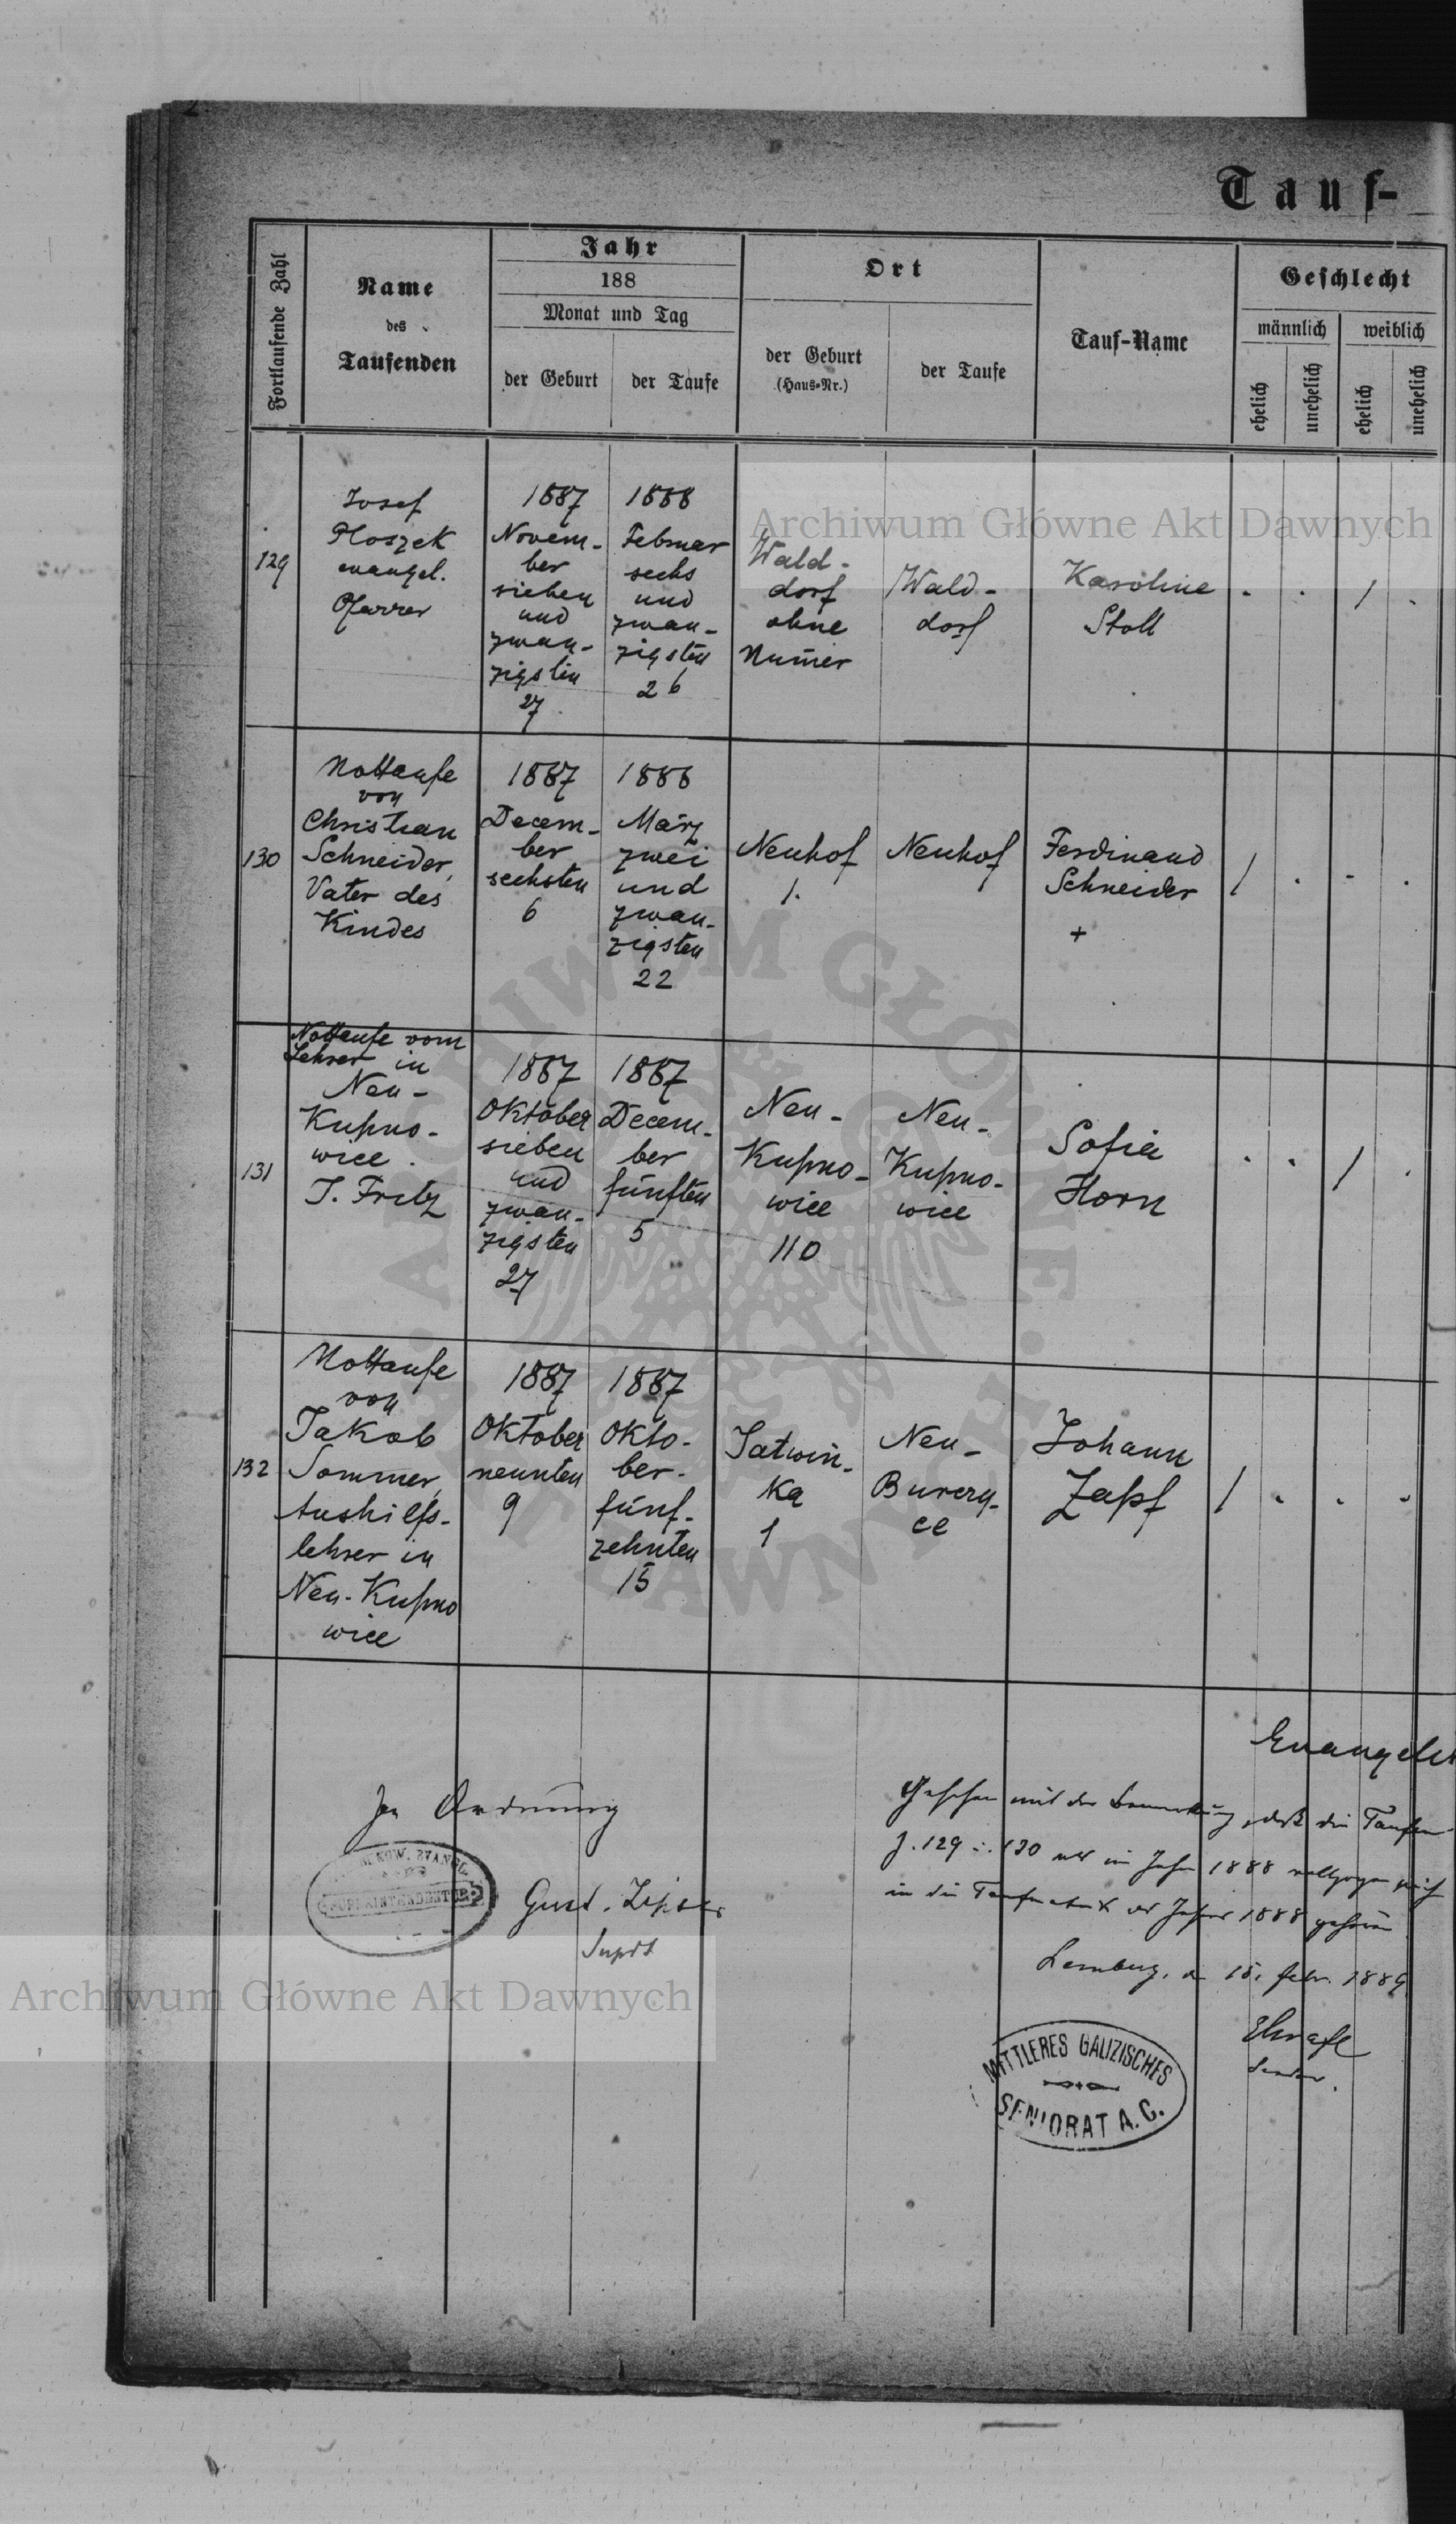 Tauf-
Fortlaufende Zahl
Name
des
Taufenden
Jahr
188
Monat und Tag
der Geburt
der Taufe
Ort
der Geburt
(Haus-Nr.)
der Taufe
Tauf-Name
Geschlecht
männlich
weiblich
ehelich
unehelich
ehelich
unehelich
Archiwum Główne Akt Dawnych
129
Josef
Ploszek
evangel.
Pfarrer
1887
Novem-
ber
sieben
und
zwan-
zigsten
27
1888
Februar
sechs
und
zwan-
zigsten
26
Wald-
dorf
ohne
Numer
Wald-
dorf
Karoline
Stoll
130
Nottaufe
von
Christian
Schneider,
Vater des
Kindes
1887
Decem-
ber
sechsten
6
1888
März
zwei
und
zwan-
zigsten
22
Neuhof
1.
Neuhof
Ferdinand
Schneider
+
131
Nottaufe vom
Lehrer in
Neu-
Kupno-
wice.
J. Fritz
1887
Oktober
sieben
und
zwan-
zigsten
27
1887
Decem-
ber
fünften
5
Neu-
Kupno-
wice
110
Neu-
Kupno-
wice
Sofia
Horn
132
Nottaufe
von
Jakob
Sommer,
Aushilfs-
lehrer in
Neu-Kupno
wice
1887
Oktober
neunten
9
1887
Okto-
ber
fünf-
zehnten
15
Satwin-
ka
1
Neu-
Burczy-
ce
Johann
Zapf
Evangelis
In Ordnung
Gust. Zipser
Supdt
Gesehen mit der Bemerkung, daß die Taufen
Z. 129 i. 130 weil im Jahre 1888 vollzogen
in die Taufmatrik des Jahres 1888 gehören
Lemberg, den 15. Febr. 1889
Senior.
MITTLERES GALIZISCHES
SENIORAT A. C.
EVANGL.
SUPERINTENDENTUR
Archiwum Główne Akt Dawnych
ARCHIWUM GŁÓWNE AKT DAWNYCH